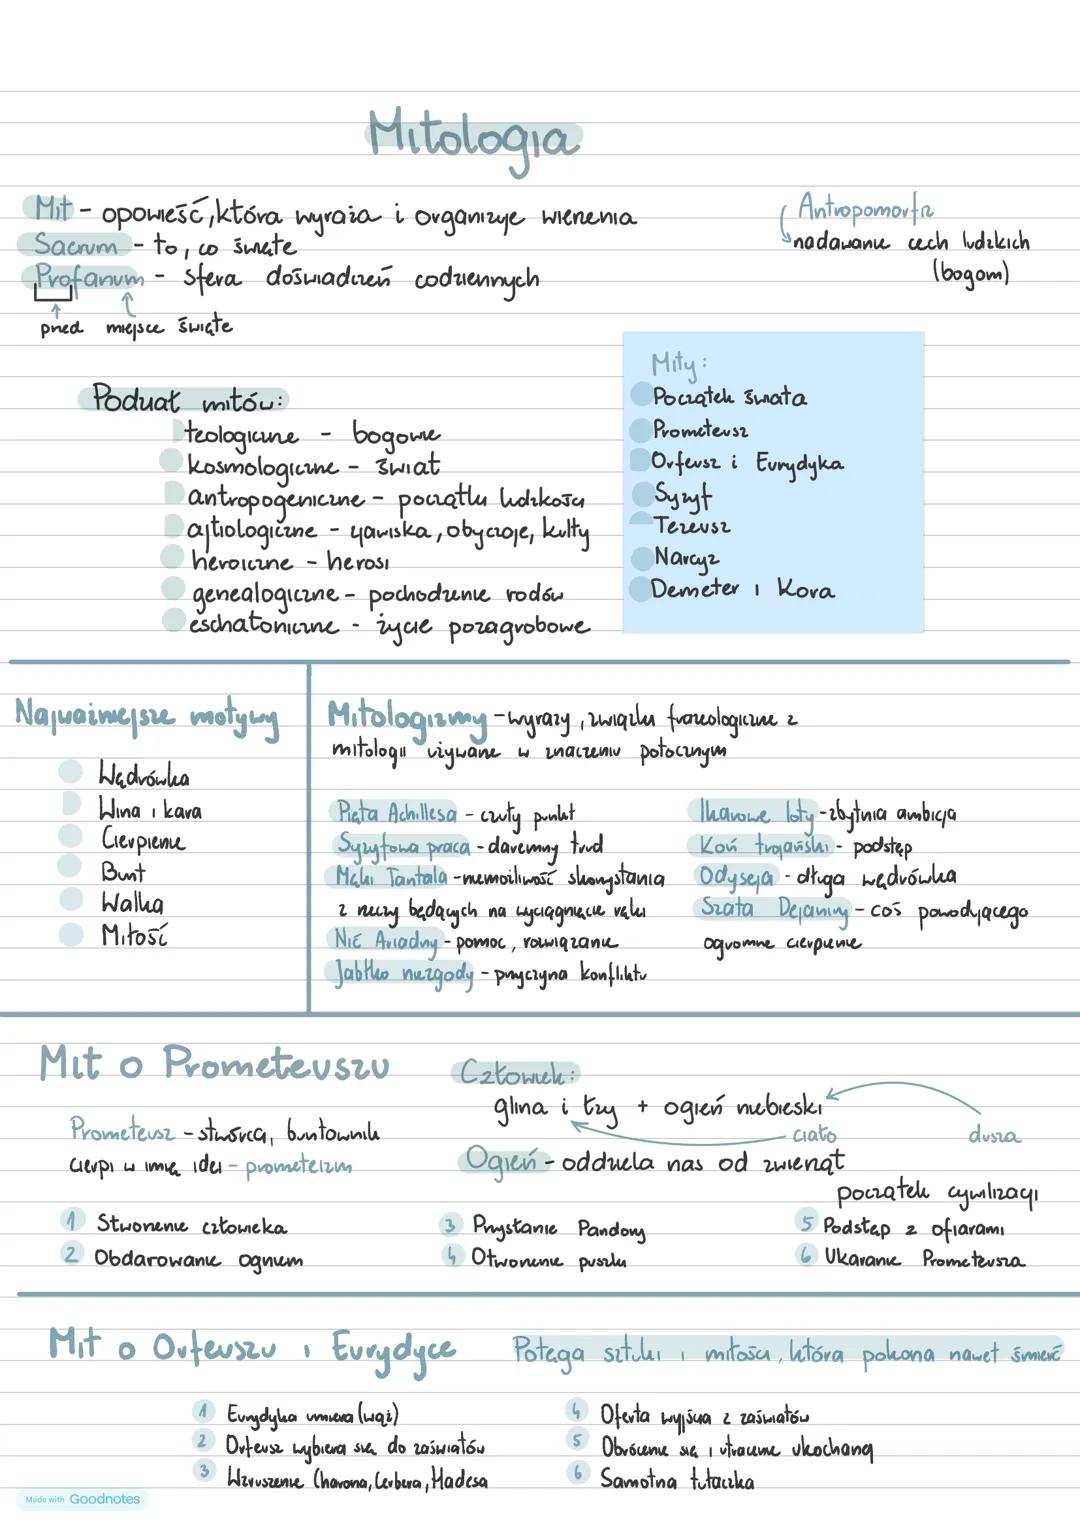 Mitologia
Mit - opowieść, która wyraża i organizuje wierzenia
Sacrum - to, co święte
Profanum - sfera doświadczeń codziennych
przed miejsce święte
Antropomorfiz
nadawanie cech ludzkich
(bogom)
Podział mitów:
teologiczne - bogowie
kosmologiczne - świat
antropogeniczne - początki ludzkości
ajtiologiczne - zjawiska, obyczaje, kulty
heroiczne - herosi
genealogiczne - pochodzenie rodów
eschatoniczne - życie pozagrobowe
Mity:
Początek świata
Prometeusz
Orfeusz i Eurydyka
Syzyf
Tezeusz
Narcyz
Demeter i Kora
Najważniejsze motywy
Wędrówka
Wina i kara
Cierpienie
Bunt
Walka
Miłość
Mitologizmy - wyrazy, związki frazeologiczne z
mitologii używane w znaczeniu potocznym
Pięta Achillesa - czuły punkt
Syzyfowa praca - daremny trud
Męki Tantala - niemożliwość skorzystania
z rzeczy będących na wyciągnięcie ręki
Nić Ariadny - pomoc, rozwiązanie
Jabłko niezgody - przyczyna konfliktu
Ikarowe loty - zbytnia ambicja
Koń trojański - podstęp
Odyseja - długa wędrówka
Szata Dejaniny - coś powodującego
ogromne cierpienie
Mit o Prometeuszu
Prometeusz - stwórca, buntownik
cierpi w imię idei - prometeizm
Człowiek:
glina i łzy + ogień niebieski
ciało dusza
Ogień - oddziela nas od zwierząt
początek cywilizacji
1 Stworzenie człowieka
2 Obdarowanie ogniem
3 Przysłanie Pandory
4 Otworzenie puszki
5 Podstęp z ofiarami
6 Ukaranie Prometeusza
Mit o Orfeuszu i Eurydyce
Potęga sztuki i miłości, która pokona nawet śmierć
1 Eurydyka umiera (wąż)
2 Orfeusz wybiera się do zaświatów
3 Wzruszenie Charona, Cerbera, Hadesa
4 Oferta wyjścia z zaświatów
5 Obrócenie się i utracenie ukochanej
6 Samotna tułaczka
Made with Goodnotes